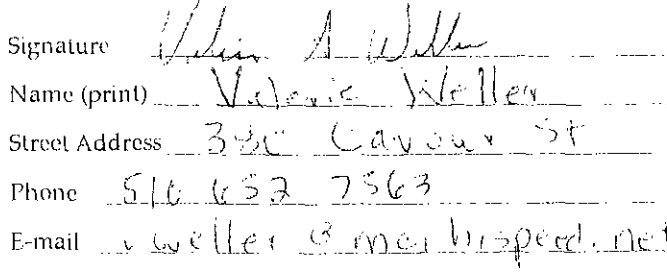 Signature
Name (print) Valerie Weller
Street Address 380 Cavour St
Phone 510 652 7563
E-mail vweller@mchispeed.net